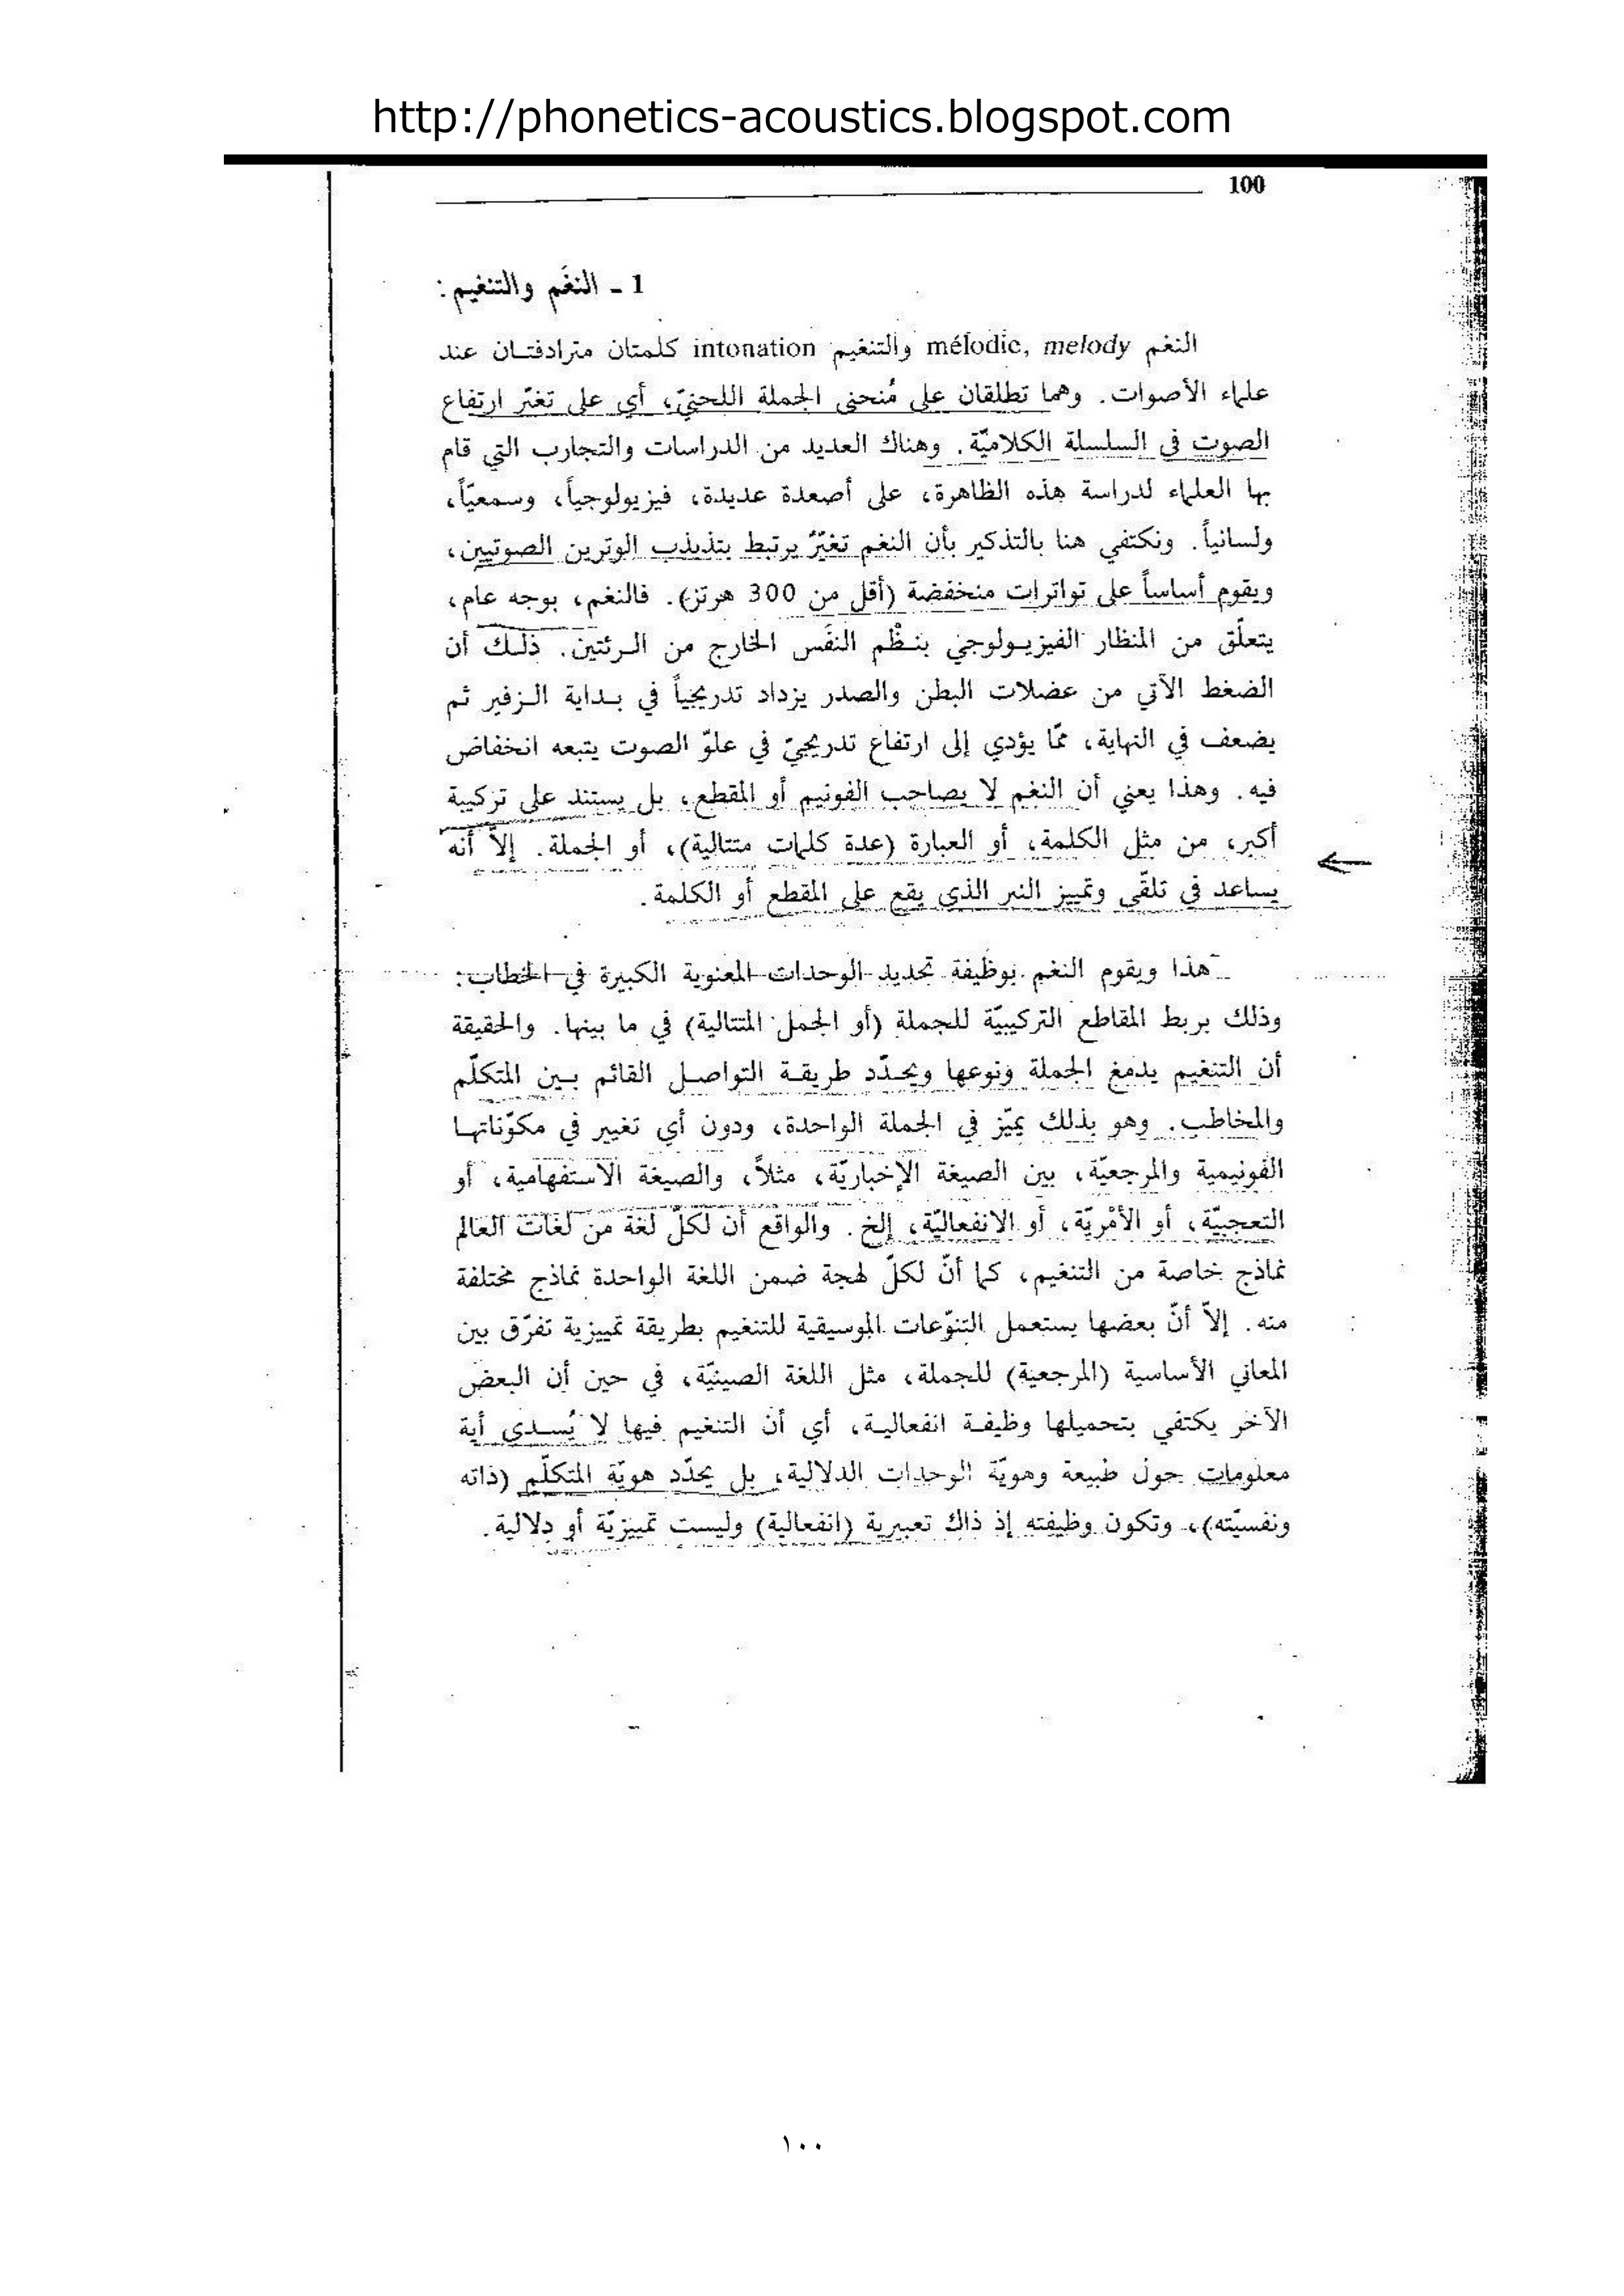 http://phonetics-acoustics.blogspot.com
100
1 - النغَم والتنغيم:
النغم mélodie, melody والتنغيم intonation كلمتان مترادفتـان عند
علماء الأصوات. وهما تطلقان على مُنحنى الجملة اللحنيّ، أي على تغيّر ارتفاع
الصوت في السلسلة الكلاميّة. وهناك العديد من الدراسات والتجارب التي قام
بها العلماء لدراسة هذه الظاهرة، على أصعدة عديدة، فيزيولوجياً، وسمعيّاً،
ولسانياً. ونكتفي هنا بالتذكير بأن النغم تغيّرٌ يرتبط بتذبذب الوترين الصوتيين،
ويقوم أساساً على تواترات منخفضة (أقل من 300 هرتز). فالنغم، بوجه عام،
يتعلّق من المنظار الفيزيـولوجي بنـظْم النفَس الخارج من الـرئتين. ذلـك أن
الضغط الآتي من عضلات البطن والصدر يزداد تدريجياً في بـداية الـزفير ثم
يضعف في النهاية، ممّا يؤدي إلى ارتفاع تدريجيّ في علوّ الصوت يتبعه انخفاض
فيه. وهذا يعني أن النغم لا يصاحب الفونيم أو المقطع، بل يستند على تركيبة
أكبر، من مثل الكلمة، أو العبارة (عدة كلمات متتالية)، أو الجملة. إلاّ أنه
يساعد في تلقّي وتمييز النبر الذي يقع على المقطع أو الكلمة.
هذا ويقوم النغم بوظيفة تحديد الوحدات المعنوية الكبيرة في الخطاب:
وذلك بربط المقاطع التركيبيّة للجملة (أو الجمل المتتالية) في ما بينها. والحقيقة
أن التنغيم يدمغ الجملة ونوعها ويحـدّد طريقـة التواصـل القائم بـين المتكلّم
والمخاطب. وهو بذلك يميّز في الجملة الواحدة، ودون أي تغيير في مكوّناتهـا
الفونيمية والمرجعيّة، بين الصيغة الإخباريّة، مثلاً، والصيغة الاستفهامية، أو
التعجبيّة، أو الأمْريّة، أو الانفعاليّة، إلخ. والواقع أن لكلّ لغة من لغات العالم
نماذج خاصة من التنغيم، كما أنّ لكلّ لهجة ضمن اللغة الواحدة نماذج مختلفة
منه. إلاّ أنّ بعضها يستعمل التنوّعات الموسيقية للتنغيم بطريقة تمييزية تفرّق بين
المعاني الأساسية (المرجعية) للجملة، مثل اللغة الصينيّة، في حين أن البعض
الآخر يكتفي بتحميلها وظيفـة انفعاليـة، أي أن التنغيم فيها لا يُسـدي أية
معلومات حول طبيعة وهويّة الوحدات الدلالية، بل يحدّد هويّة المتكلّم (ذاته
ونفسيّته)، وتكون وظيفته إذ ذاك تعبيرية (انفعالية) وليست تمييزيّة أو دلالية.
١٠٠